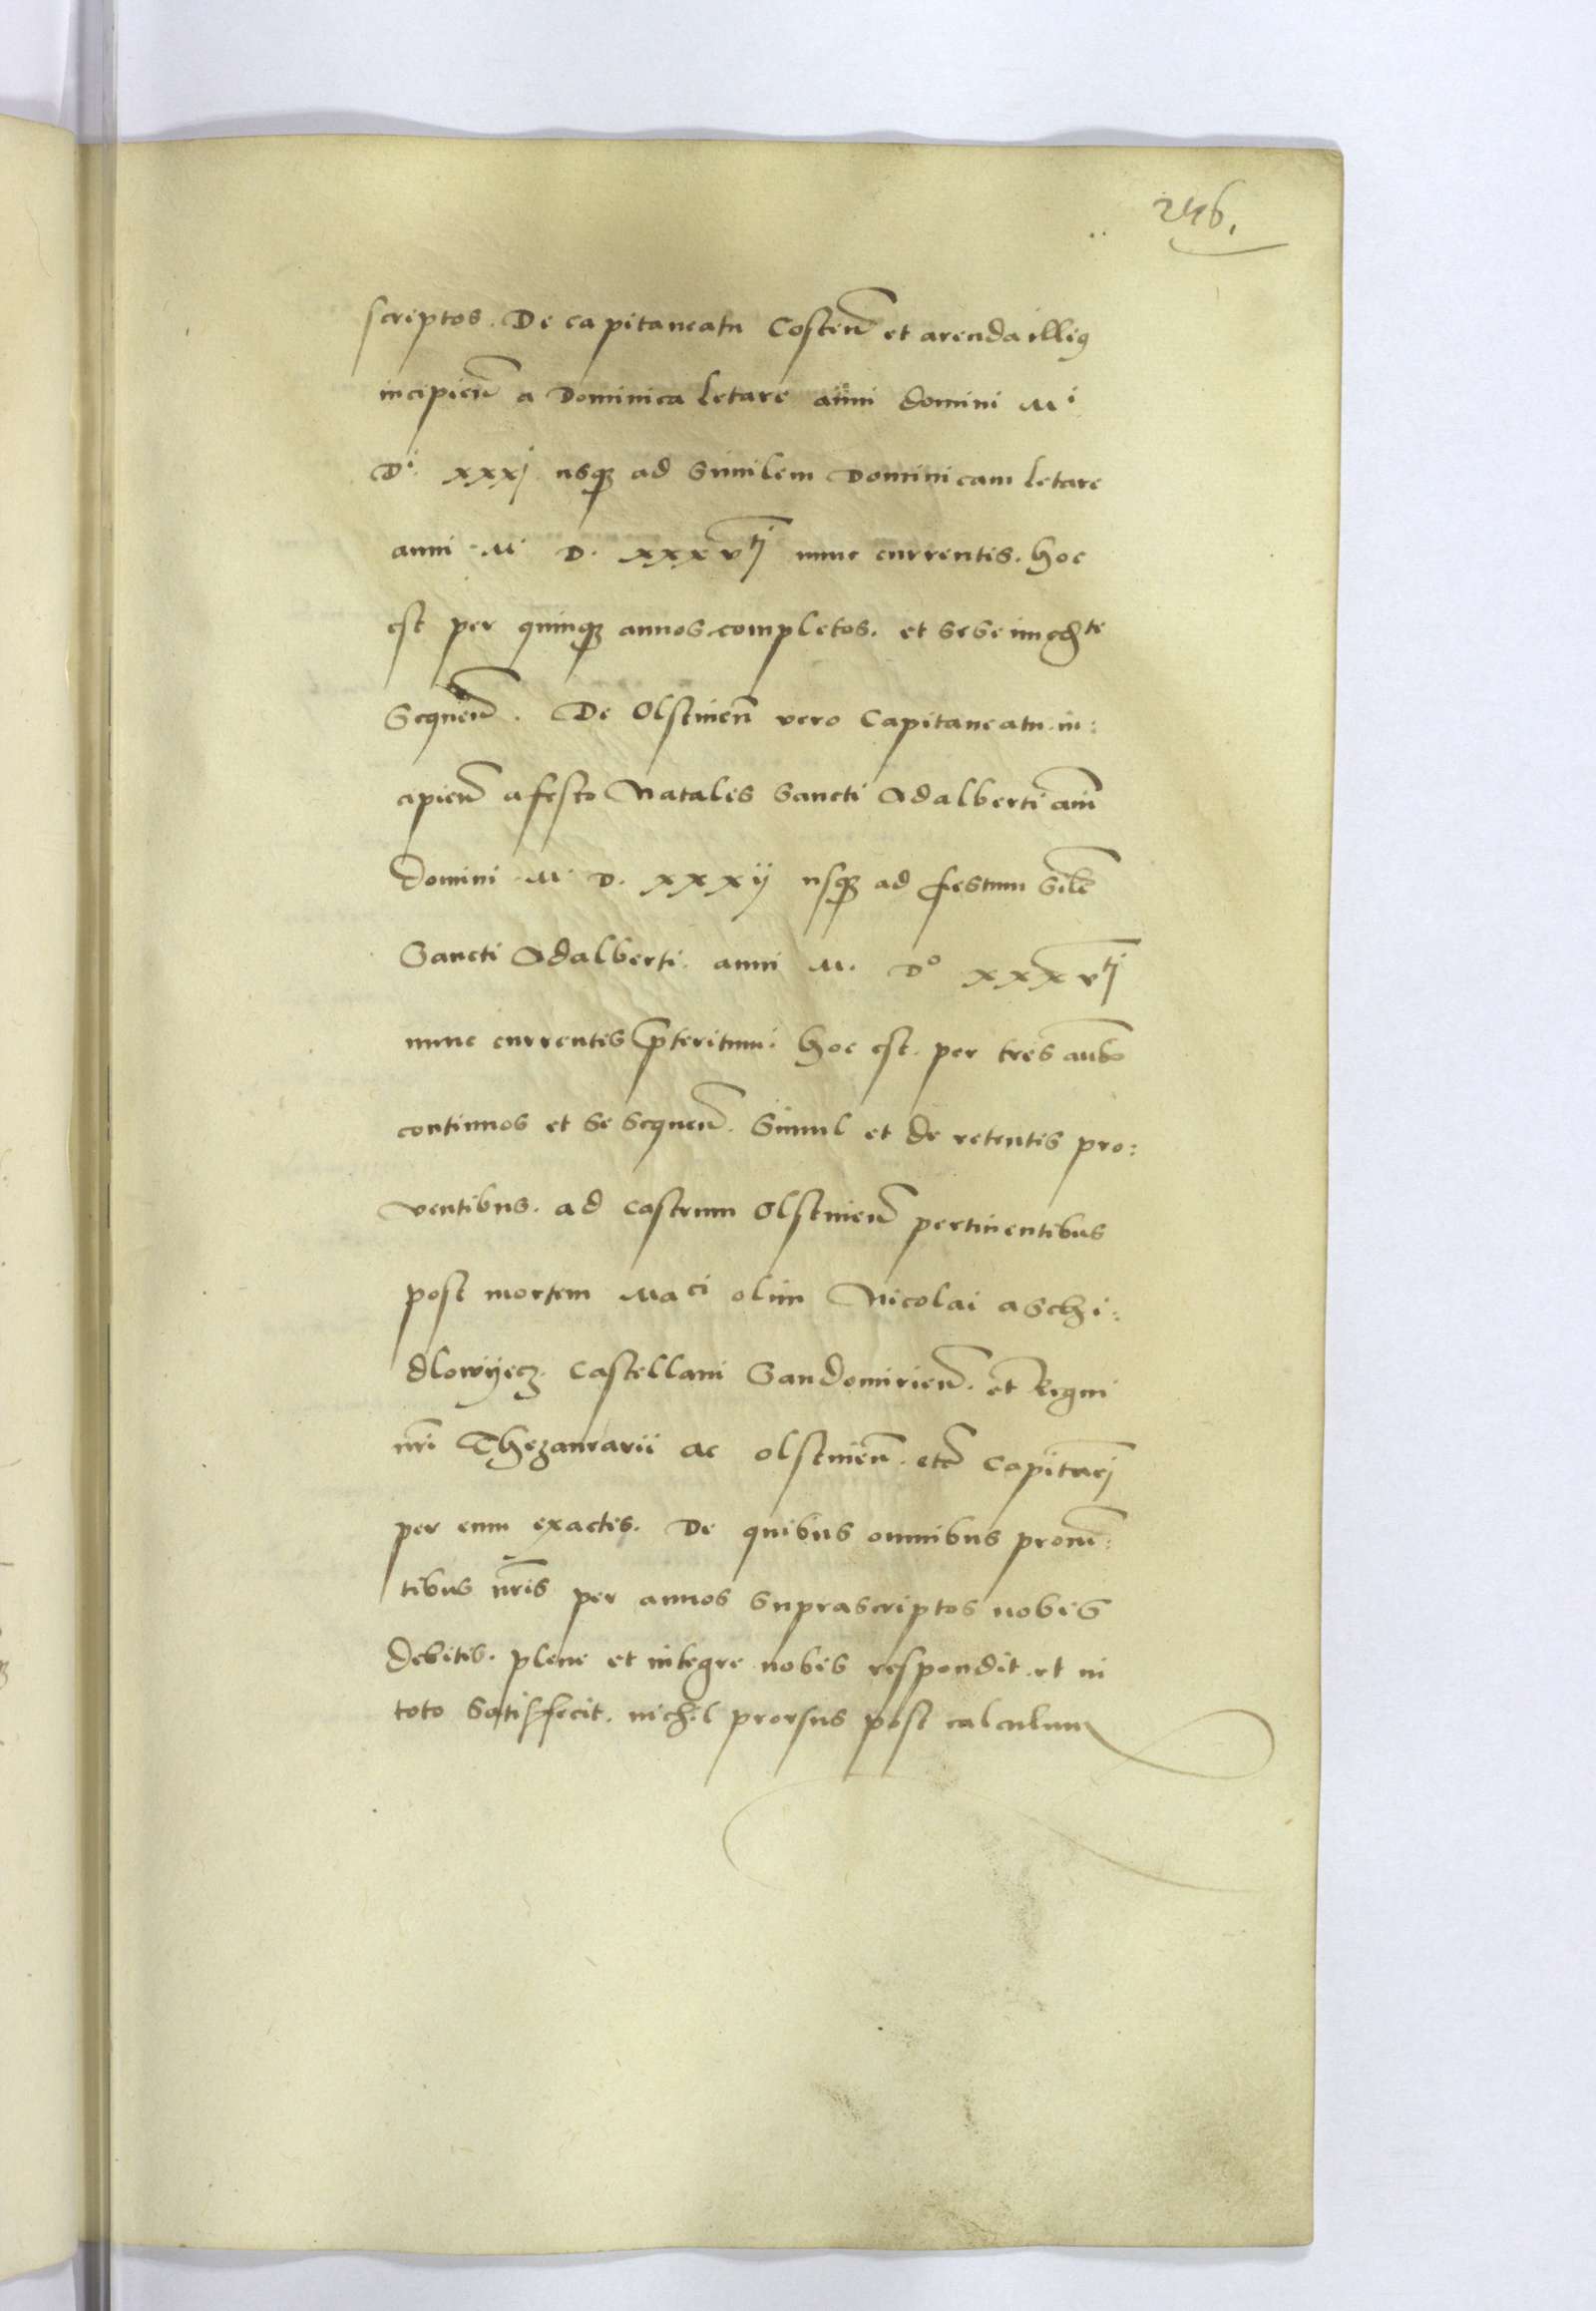 246.
scriptos. De capitaneatu Costen̄ et arenda illiꝰ
incipien̄ a Dominica letare anni domini Mⁱ
Dⁱ. xxxj usqꝫ ad Similem Dominicam letare
anni M. D. xxxvtj nunc currentis. hoc
est per quinqꝫ annos completos. et sese im̄edte
Sequen̄. De Olstinen̄ vero Capitaneatu in:
cipien̄ a festo Natalis Sancti Adalberti an̄i
domini M. D. xxxij usqꝫ ad festum Sil̄e
Sancti Adalberti. anni M. D° xxxvtj
nunc currentis p̄teritum. hoc est. per tres an̄os
continuos et se sequen̄. Simul et de retentis pro:
ventibus. ad castrum Olstinen̄ pertinentibus
post mortem Maci olim Nicolai a Schi:
dlowyecz. Castellani Sandomirien̄. et Regni
nr̄i Thezaurarii ac Olstinen̄. etc̄ Capitanej
per eum exactis. De quibus omnibus proven̄:
tibus nr̄is per annos suprascriptos nobis
debitis. plene et integre nobis respondit. et in
toto Satisfecit. nichil prorsus post calculum